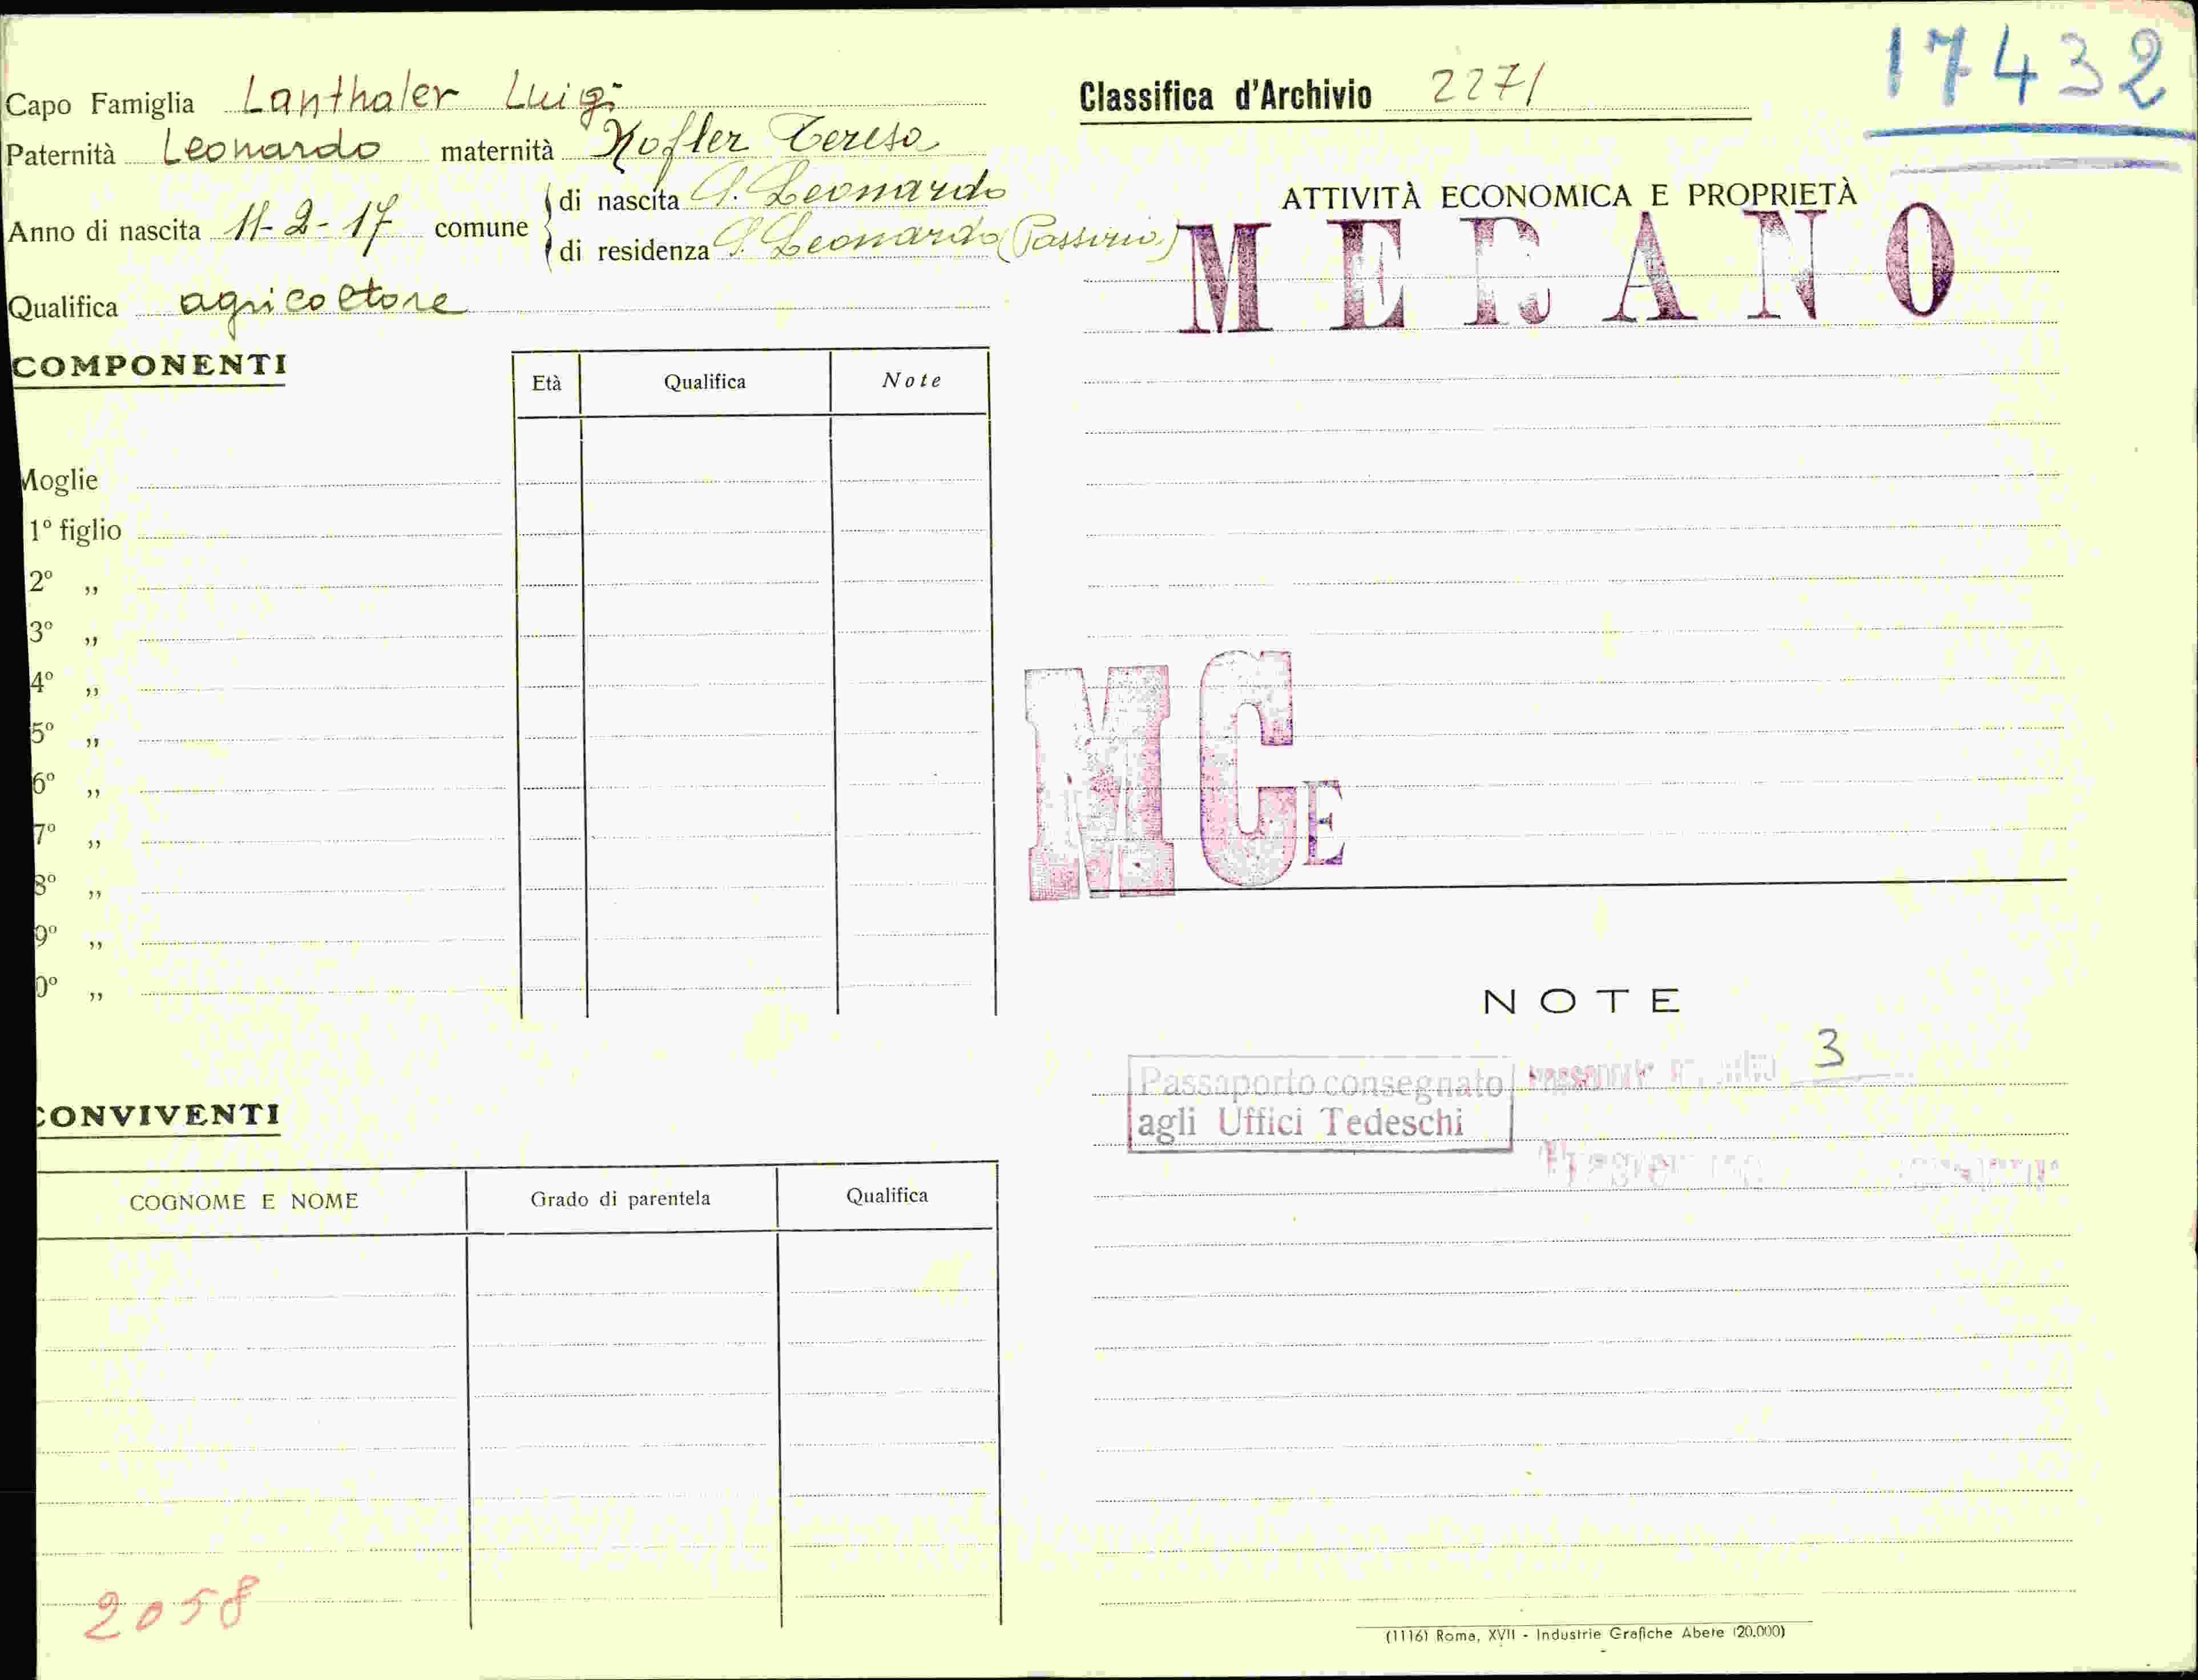 17432
Capo Famiglia Lanthaler Luigi
Paternità Leonardo maternità Kofler Teresa
Anno di nascita 11-2-17 comune di nascita S. Leonardo
di residenza S. Leonardo (Passirio)
Qualifica agricoltore
COMPONENTI
Età Qualifica Note
Moglie
1º figlio
2º „
3º „
4º „
5º „
6º „
7º „
8º „
9º „
0º „
CONVIVENTI
COGNOME E NOME Grado di parentela Qualifica
2058
Classifica d'Archivio 2271
ATTIVITÀ ECONOMICA E PROPRIETÀ
MERANO
MCE
NOTE
3
Passaporto consegnato
agli Uffici Tedeschi
(1116) Roma, XVII - Industrie Grafiche Abete (20.000)